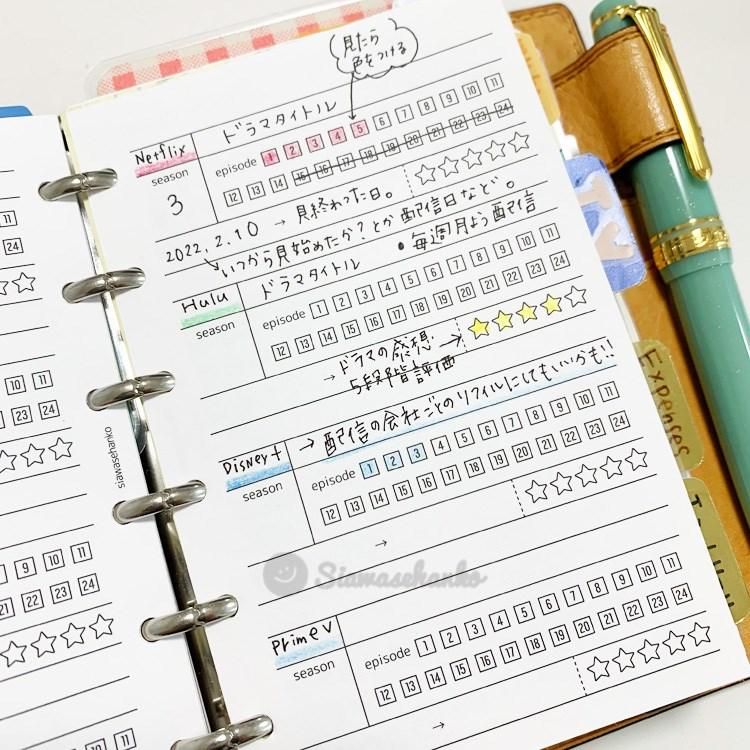 見たら
色をつける
Netflix
ドラマタイトル
season
episode 1 2 3 4 5 6 7 8 9 10 11
3
12 13 14 15 16 17 18 19 20 21 22 23 24
2022.2.10 → 見終わった日。
いつから見始めたか?とか配信日など。
• 毎週月よう配信
Hulu
ドラマタイトル
season
episode 1 2 3 4 5 6 7 8 9 10 11
12 13 14 15 16 17 18 19 20 21 22 23 24
→ ドラマの感想
5段階評価 →
→ 配信の会社ごとのリフィルにしてもいいかも!!
Disney+
season
episode 1 2 3 4 5 6 7 8 9 10 11
12 13 14 15 16 17 18 19 20 21 22 23 24
→
Siawasehanko
Prime V
season
episode 1 2 3 4 5 6 7 8 9 10 11
12 13 14 15 16 17 18 19 20 21 22 23 24
→
siawasehanko
11
24
11
24
10 11
23 24
10 11
22 23 24
10 11
21 22 23 24
10 11
Expenses